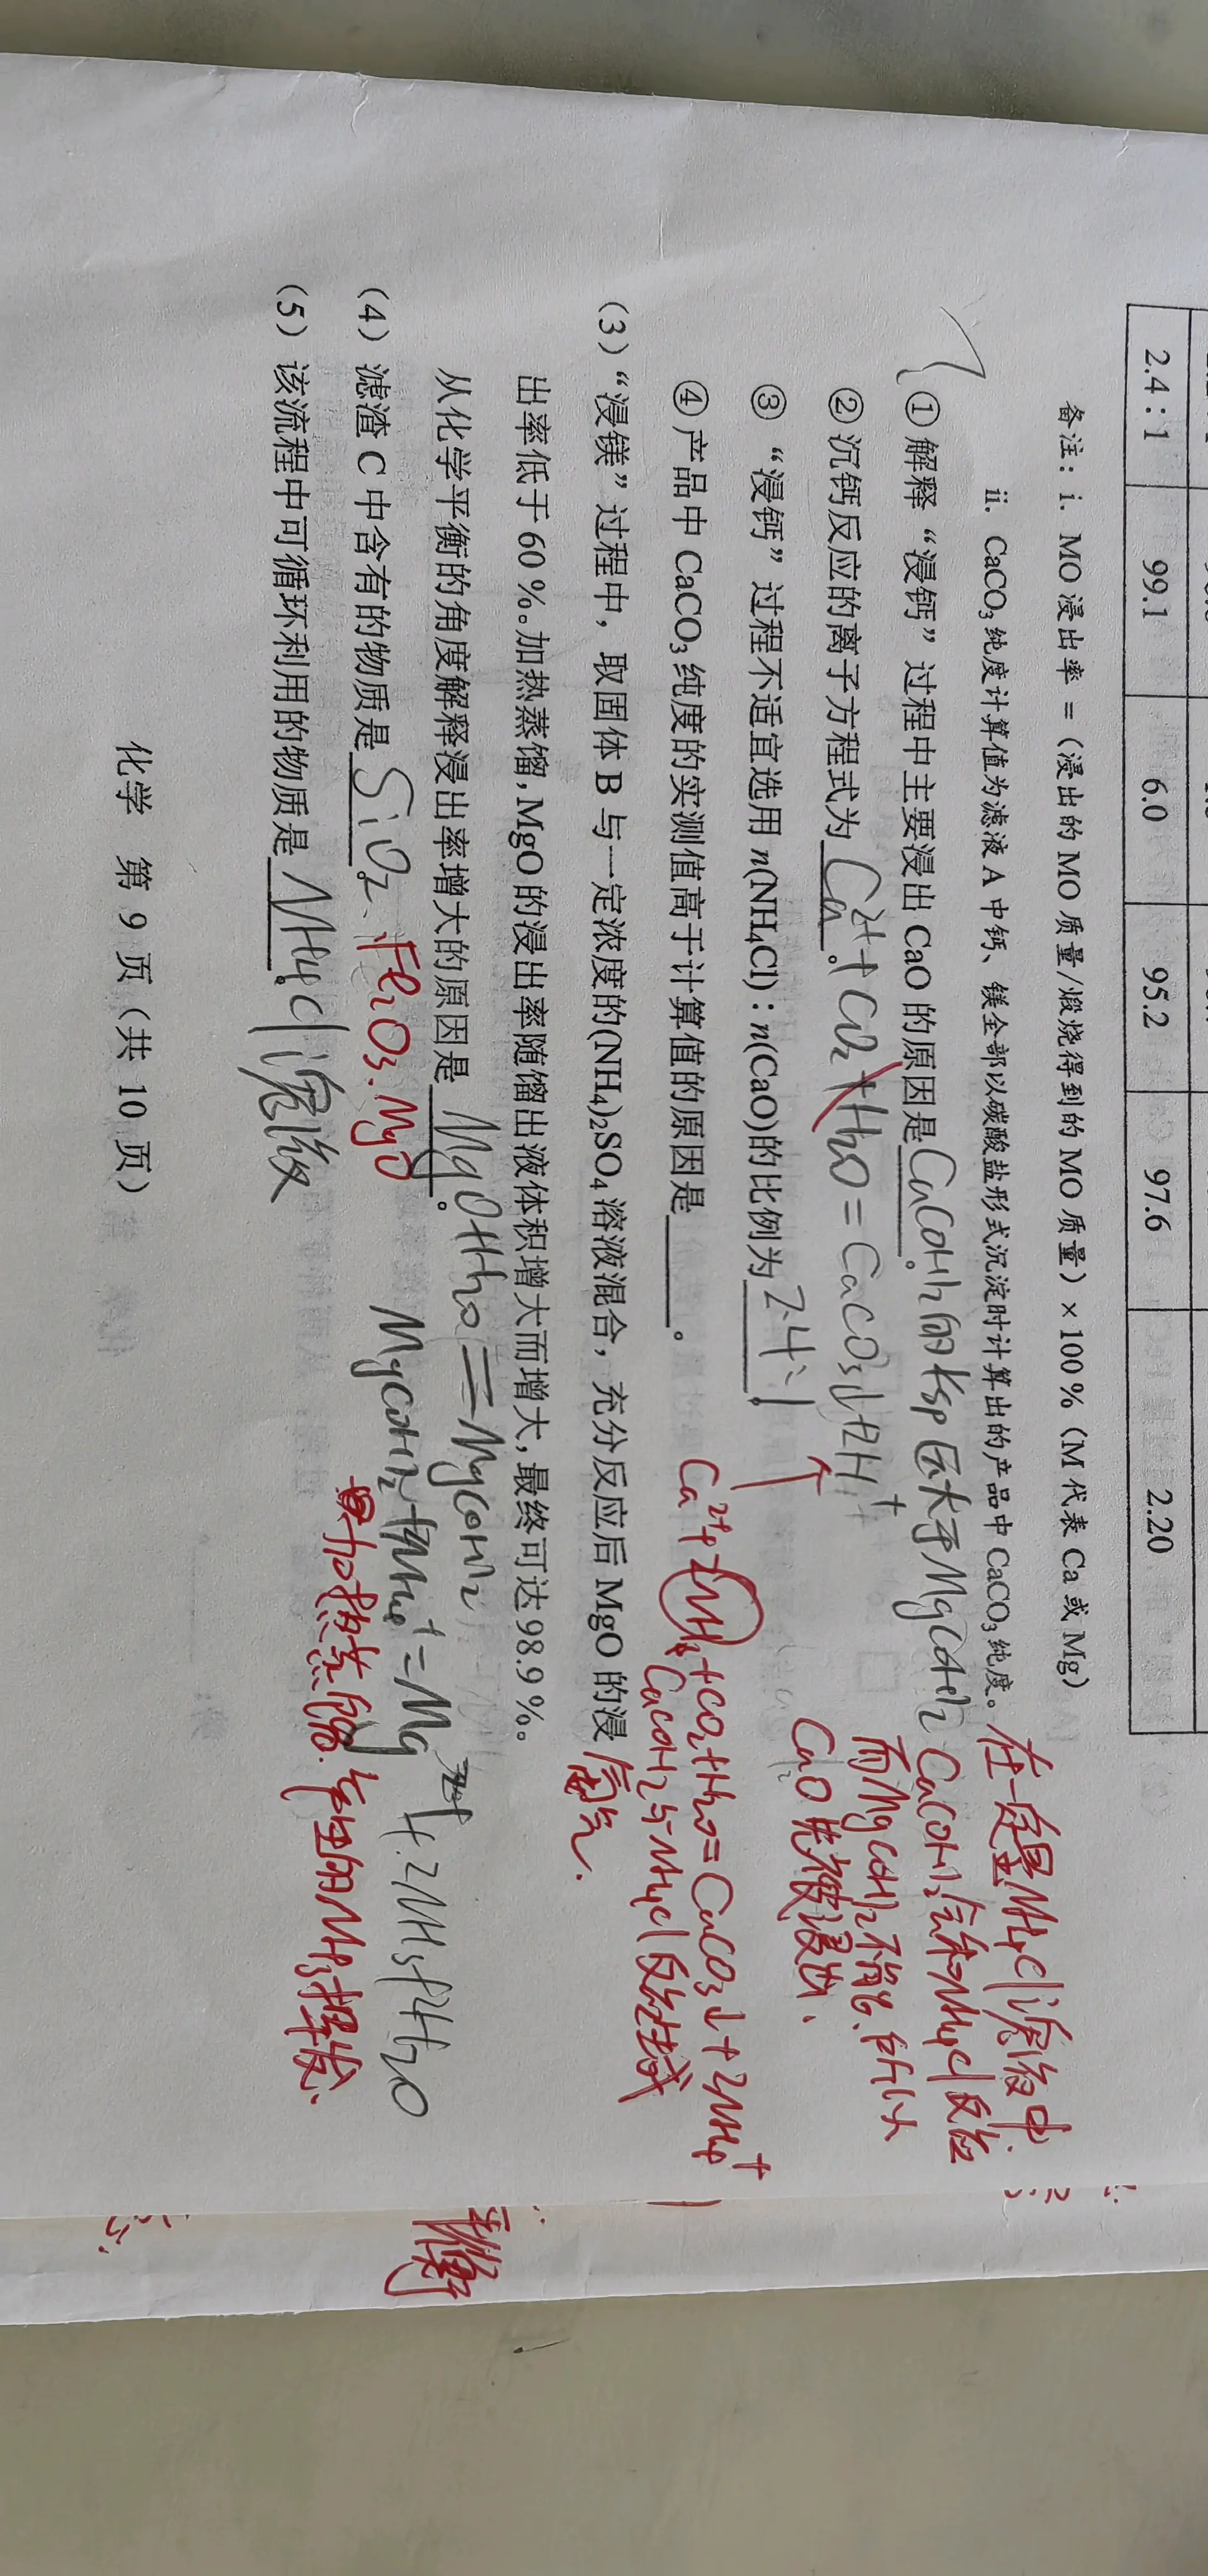 2.4 : 1 99.1 6.0 95.2 97.6 2.20
备注：i. MO 浸出率 =（浸出的 MO 质量/煅烧得到的 MO 质量）×100%（M 代表 Ca 或 Mg）
ii. CaCO₃纯度计算值为滤液 A 中钙、镁全部以碳酸盐形式沉淀时计算出的产品中 CaCO₃纯度。
①解释“浸钙”过程中主要浸出 CaO 的原因是 Ca(OH)₂的Ksp 大于Mg(OH)₂。
在一定量NH₄Cl溶液中
Ca(OH)₂会和NH₄Cl反应
而Mg(OH)₂不能
CaO先被浸出、
②沉钙反应的离子方程式为 Ca²⁺+CO₂+H₂O=CaCO₃↓+2H⁺。
Ca²⁺+2NH₃+CO₂+H₂O=CaCO₃↓+2NH₄⁺
③“浸钙”过程不适宜选用 n(NH₄Cl) : n(CaO)的比例为 2.4:1。
④产品中 CaCO₃纯度的实测值高于计算值的原因是 。
Ca(OH)₂与NH₄Cl反应生成
氨气.
(3)“浸镁”过程中，取固体 B 与一定浓度的(NH₄)₂SO₄溶液混合，充分反应后 MgO 的浸
出率低于 60%。加热蒸馏，MgO 的浸出率随馏出液体积增大而增大，最终可达 98.9%。
从化学平衡的角度解释浸出率增大的原因是 MgO+H₂O=Mg(OH)₂。
Mg(OH)₂+2NH₄⁺=Mg²⁺+2NH₃+2H₂O
加热蒸馏. 产生的NH₃挥发.
平衡
(4) 滤渣 C 中含有的物质是 SiO₂、Fe₂O₃.MgO。
(5) 该流程中可循环利用的物质是 NH₄Cl溶液。
化学 第 9 页（共 10 页）